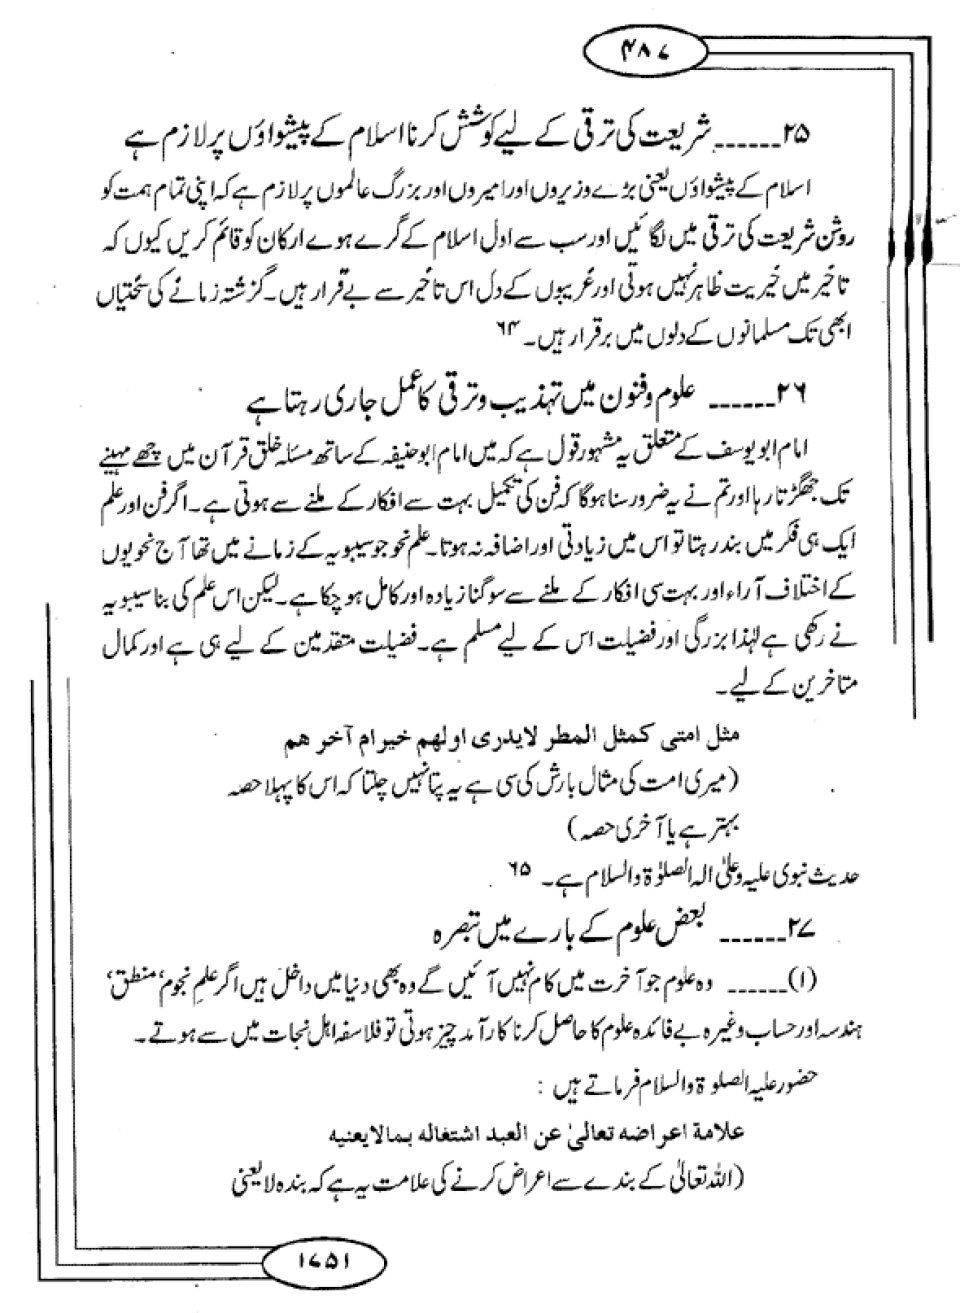 ۴۸۷
۲۵ـــــــ شریعت کی ترقی کے لیے کوشش کرنا اسلام کے پیشواؤں پر لازم ہے
اسلام کے پیشواؤں یعنی بڑے وزیروں اور امیروں اور بزرگ عالموں پر لازم ہے کہ اپنی تمام ہمت کو
روشن شریعت کی ترقی میں لگائیں اور سب سے اول اسلام کے گرے ہوے ارکان کو قائم کریں کیوں کہ
تاخیر میں خیریت ظاہر نہیں ہوتی اور غریبوں کے دل اس تاخیر سے بے قرار ہیں۔ گزشتہ زمانے کی سختیاں
ابھی تک مسلمانوں کے دلوں میں برقرار ہیں۔ ۶۴
۲۶ـــــــ علوم و فنون میں تہذیب و ترقی کا عمل جاری رہتا ہے
امام ابو یوسف کے متعلق یہ مشہور قول ہے کہ میں امام ابو حنیفہ کے ساتھ مسئلہ خلق قرآن میں چھے مہینے
تک جھگڑتا رہا اور تم نے یہ ضرور سنا ہوگا کہ فن کی تکمیل بہت سے افکار کے ملنے سے ہوتی ہے۔ اگر فن اور علم
ایک ہی فکر میں بند رہتا تو اس میں زیادتی اور اضافہ نہ ہوتا۔ علم نحو جو سیبویہ کے زمانے میں تھا آج نحویوں
کے اختلاف آراء اور بہت سی افکار کے ملنے سے سو گنا زیادہ اور کامل ہو چکا ہے۔ لیکن اس علم کی بنا سیبویہ
نے رکھی ہے لہٰذا بزرگی اور فضیلت اس کے لیے مسلم ہے۔ فضیلت متقدمین کے لیے ہی ہے اور کمال
متاخرین کے لیے۔
مثل امتی کمثل المطر لایدری اولھم خیرام آخر ھم
(میری امت کی مثال بارش کی سی ہے یہ پتا نہیں چلتا کہ اس کا پہلا حصہ
بہتر ہے یا آخری حصہ)
حدیث نبوی علیہ وعلیٰ الہ الصلوٰۃ والسلام ہے۔ ۶۵
۲۷ـــــــ بعض علوم کے بارے میں تبصرہ
(۱)ـــــــ وہ علوم جو آخرت میں کام نہیں آئیں گے وہ بھی دنیا میں داخل ہیں اگر علمِ نجوم، منطق،
ہندسہ اور حساب وغیرہ بے فائدہ علوم کا حاصل کرنا کار آمد چیز ہوتی تو فلاسفہ اہل نجات میں سے ہوتے۔
حضور علیہ الصلوۃ والسلام فرماتے ہیں :
علامة اعراضه تعالیٰ عن العبد اشتغاله بمالایعنیه
(اللہ تعالیٰ کے بندے سے اعراض کرنے کی علامت یہ ہے کہ بندہ لایعنی
۱۷۵۱